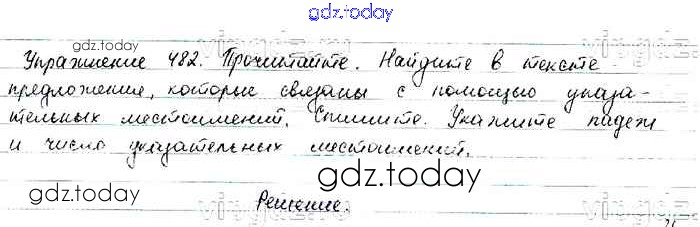 gdz.today
Упражнение 482. Прочитайте. Найдите в тексте
gdz.today
предложения, которые связаны с помощью указа-
тельных местоимений. Спишите. Укажите падеж
и число указательных местоимений.
gdz.today
gdz.today
Решение.